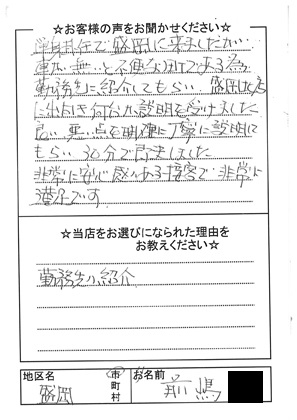 ☆お客様の声をお聞かせください☆
単身赴任で盛岡に来ましたが…
車が無いと不便な所である為
勤務先に紹介してもらい 盛岡
に出向き何台か説明を受けました
良い 悪い点を明確に丁寧に説明して
もらい 30分で決まりました
非常に安心感のある接客で 非常に
満足です
☆当店をお選びになられた理由を
お教えください☆
勤務先の紹介
地区名
盛岡
市
町
村
お名前
前嶋